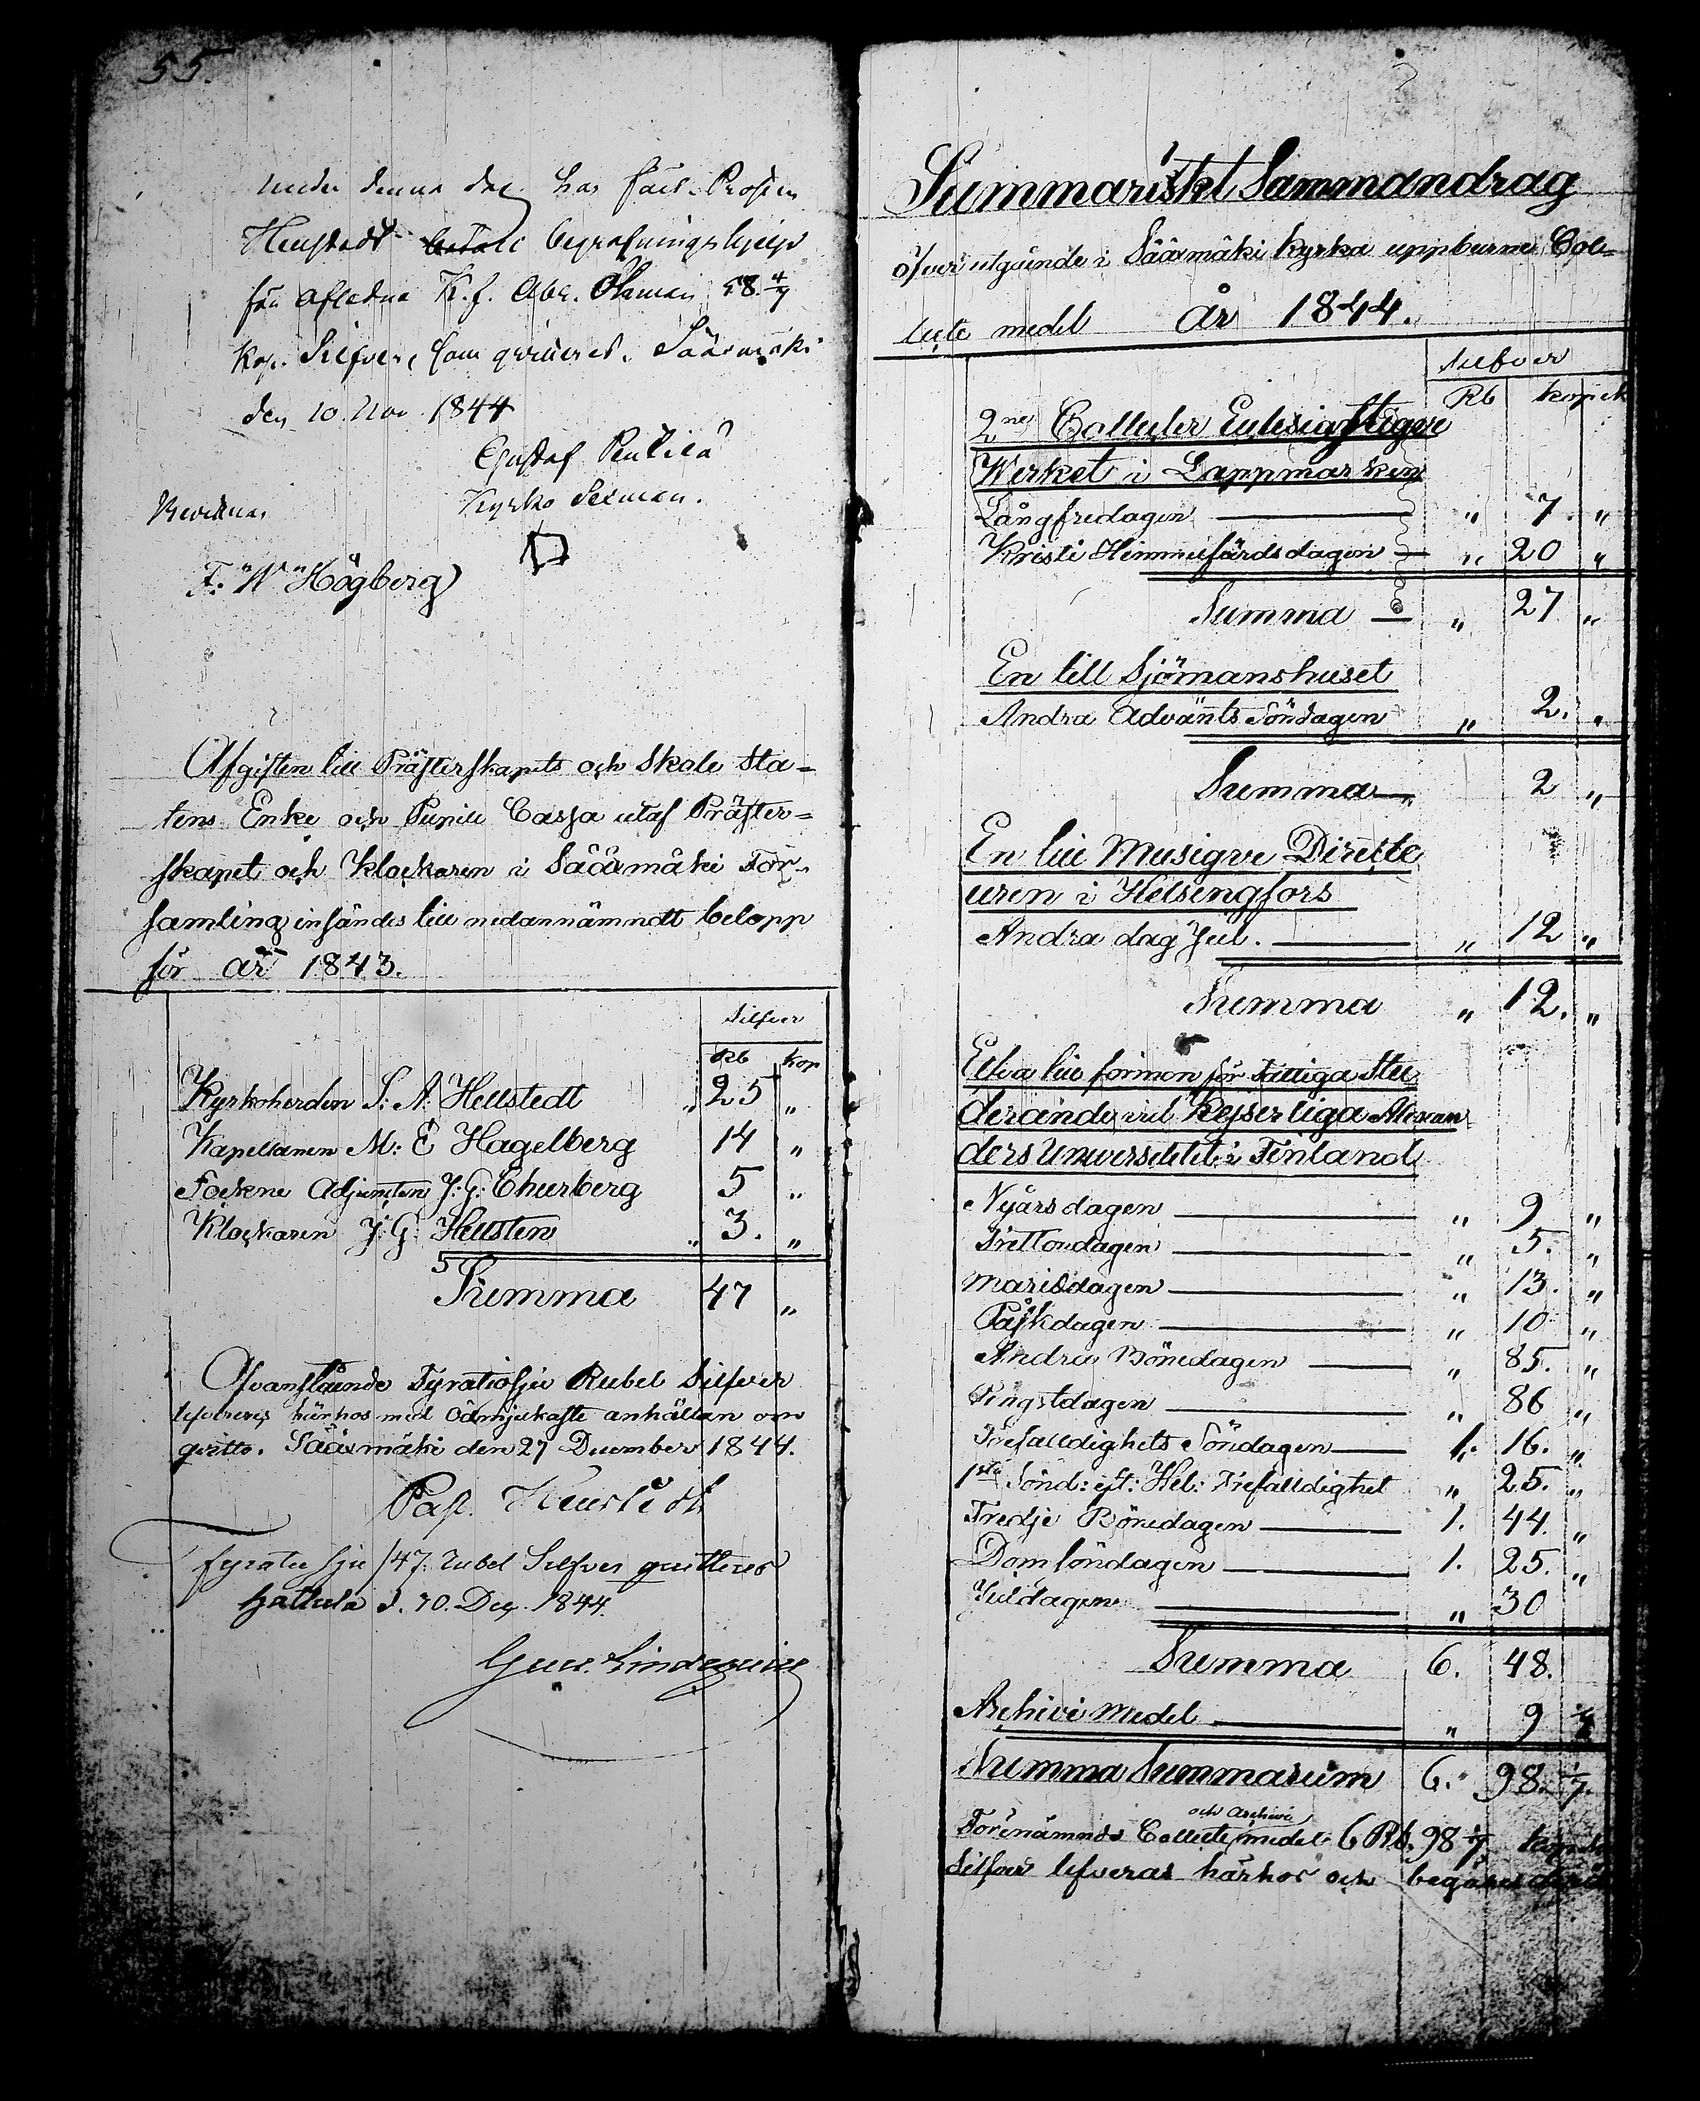 55.
Under denna dag har Herr Prosten
Hellstedt betalt begrafningshjelp
för aflidna K. f. Abr. Öhman 58 4/7
Kop. Silfver, som qvitteras. Sääxmäki
den 10. Nov. 1844
Gustaf
Kyrko
F: W Högberg
Afgiften till Prästerskapets och Skole Sta=
tens Enke och Pupill Cassa utaf Präster=
skapet och Klockaren i Sääxmäki För=
samling insändes till nedannämndt belopp
för år 1843.
Silfver
Rb Kop
Kyrkoherden S: A: Hellstedt " 25 "
Kapellanen M: E Hagelberg 14 "
Sockne Adjuncten J: G: Churberg 5 "
Klockaren J: G: Hellsten " 3. "
Summa 47 "
Ofvanstående Fyratiosju Rubel Silfver
lefvereres härhos med ödmjukaste anhållan om
qvitto. Sääxmäki den 27 December 1844.
Past. Hellstedt
Fyratio sju /47. rubel Silfver quitteras
Hattula d. 30. Dec. 1844.
Gust. Lindequist
Summariskt Sammandrag
öfver utgående i Sääxmäki Kyrka uppburna Col=
lecte medel År 1844.
Silfver
Rb Kopek
2ne Collecter Ecklesiastique
Werket i Lappmarken
Långfredagen " 7. "
Kristi Himmelfärds dagen " 20 "
Summa " 27 "
En till Sjömanshuset
Andra Advänts Söndagen " 2. "
Summa " 2 "
En till Musiqve Direkte
uren i Helsingfors
Andra dag Jul. " 12 "
Summa " 12. "
Elfva till förmon för fattiga Stu
derande vid Kejserliga Alexan
ders Universitetet i Finland
Nyårsdagen " 9 "
Trettondagen " 5. "
Mariædagen " 13. "
Påskdagen " 10 "
Andra Bönedagen " 85. "
Pingstdagen " 86 "
Trefalldighets Söndagen 1. 16. "
1sta Sönd: eft: Hel: Trefalldighet " 25. "
Tredje Bönedagen 1. 44. "
Domsöndagen 1. 25. "
Juldagen " 30
Summa 6. 48.
Archivi medel " 9 1/7
Summa Summarum 6. 98. 1/7.
och Archivi
Förenämnde Collecte medel 6 Rb. 98 1/7 kopek
Silfver lefveras härhos och begäres